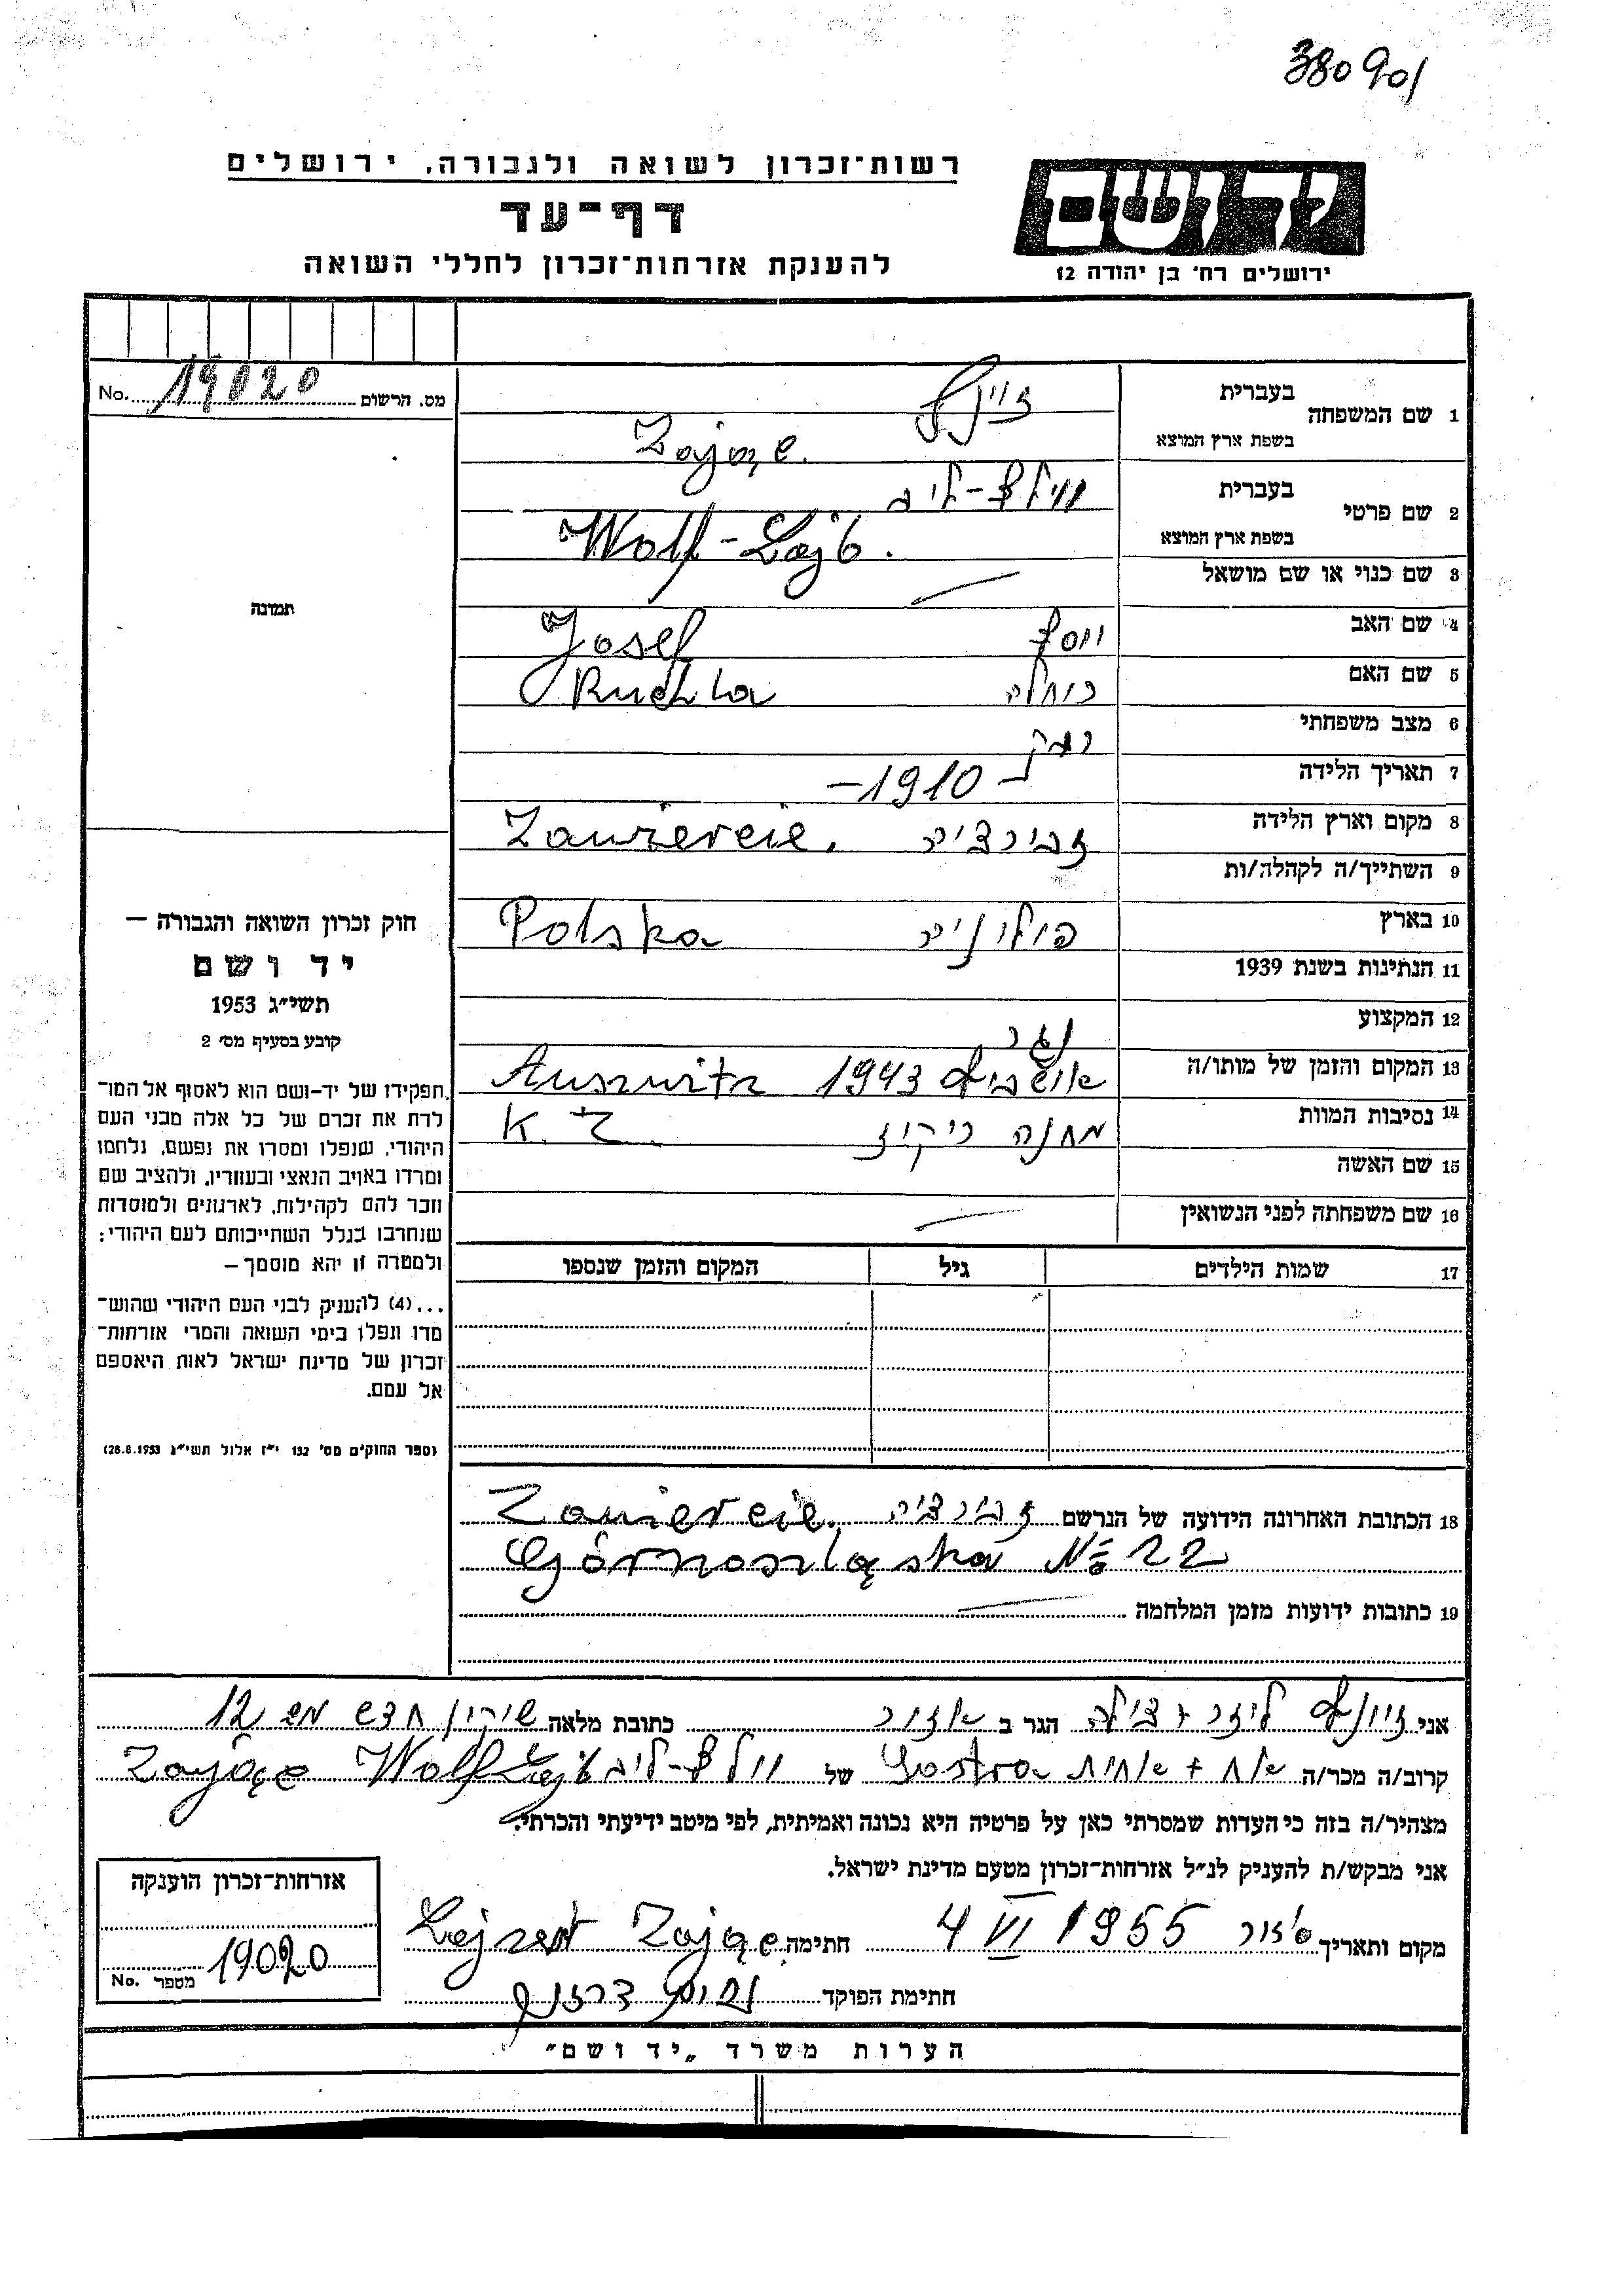 380901
רשות־זכרון לשואה ולגבורה, ירושלים
דף־עד
להענקת אזרחות־זכרון לחללי השואה
יד ושם
ירושלים רח' בן יהודה 12
מס. הרשום 19020 No.
תמונה
חוק זכרון השואה והגבורה —
יד ושם
תשי״ג 1953
קובע בסעיף מס' 2
תפקידו של יד-ושם הוא לאסוף אל המו־
לדת את זכרם של כל אלה מבני העם
היהודי, שנפלו ומסרו את נפשם, נלחמו
ומרדו באויב הנאצי ובעוזריו, ולהציב שם
וזכר להם לקהילות, לארגונים ולמוסדות
שנחרבו בגלל השתייכותם לעם היהודי;
ולמטרה זו יהא מוסמך —
...(4) להעניק לבני העם היהודי שהוש־
מדו ונפלו בימי השואה והמרי אזרחות־
זכרון של מדינת ישראל לאות היאספם
אל עמם.
(ספר החוקים מס' 132 י״ז אלול תשי״ג 28.8.1953)
1 שם המשפחה בעברית
בשפת ארץ המוצא Zając.
2 שם פרטי בעברית וולף-ליב
בשפת ארץ המוצא Wolf-Lajb.
3 שם כנוי או שם מושאל
4 שם האב יוסף Josef
5 שם האם רוחלה Ruchla
6 מצב משפחתי רווק
7 תאריך הלידה – 1910 –
8 מקום וארץ הלידה זבירציה Zawiercie.
9 השתייך/ה לקהלה/ות
10 בארץ פולניה Polska
11 הנתינות בשנת 1939
12 המקצוע נגר
13 המקום והזמן של מותו/ה 1943 Auszwitz
14 נסיבות המוות מחנה ריקוז K. Z.
15 שם האשה
16 שם משפחתה לפני הנשואין
17 שמות הילדים גיל המקום והזמן שנספו
18 הכתובת האחרונה הידועה של הנרשם זבירציה Zawiercie.
Górnoszląska № 22
19 כתובות ידועות מזמן המלחמה
אני הגר ב אזור כתובת מלאה שיכון חדש מס 12
קרוב/ה מכר/ה אח + אחות Sostra של וולף-ליב Zając Wolf Lajb
מצהיר/ה בזה כי העדות שמסרתי כאן על פרטיה היא נכונה ואמיתית, לפי מיטב ידיעתי והכרתי.
אני מבקש/ת להעניק לנ״ל אזרחות־זכרון מטעם מדינת ישראל.
מקום ותאריך 4 VI 1955 חתימה Lajzer Zając
חתימת הפוקד
אזרחות־זכרון הוענקה
מספר 19020 No.
הערות משרד „יד ושם״